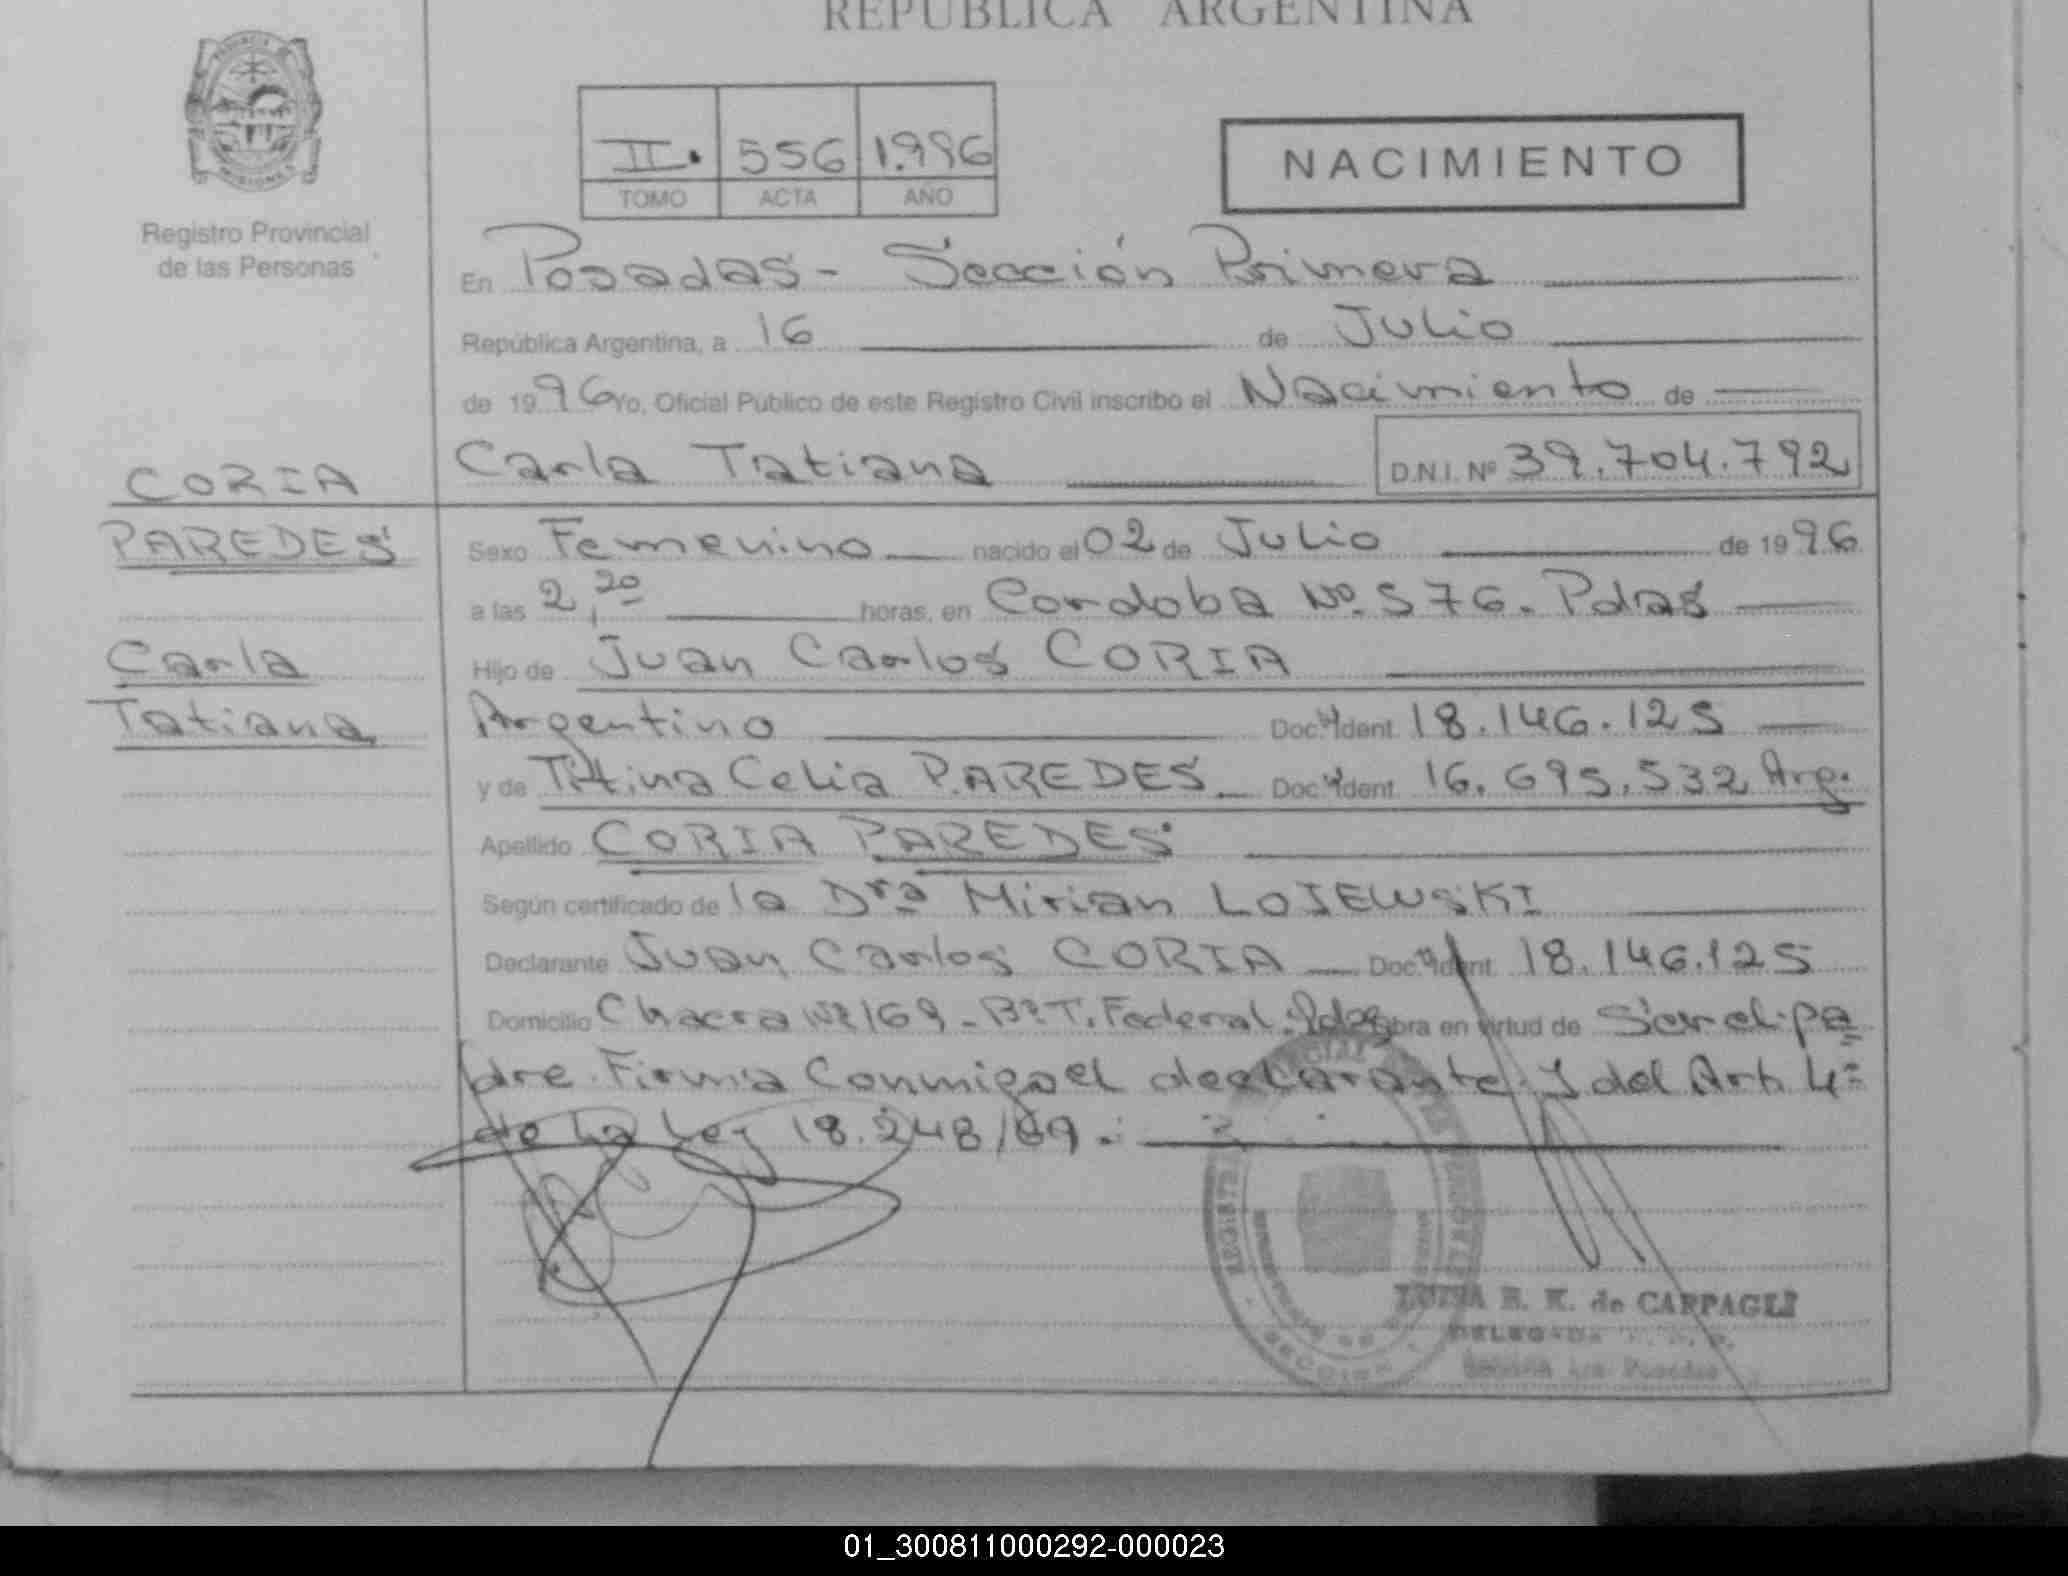 REPUBLICA ARGENTINA
PROVINCIA DE
MISIONES
Registro Provincial
de las Personas
II. 556 1.996
TOMO ACTA AÑO
NACIMIENTO
En Posadas - Sección Primera
República Argentina, a 16 de Julio
de 1996 Yo, Oficial Público de este Registro Civil inscribo el Nacimiento de
Carla Tatiana D.N.I. Nº 39.704.792
CORIA
PAREDES
Carla
Tatiana
Sexo Femenino nacido el 02 de Julio de 1996
a las 2,20 horas, en Cordoba Nº. 576. Pdas
Hijo de Juan Carlos CORIA
Argentino Doc. Ident. 18.146.125
y de Celia PAREDES Doc. Ident. 16.695.532 Arg.
Apellido CORIA PAREDES
Según certificado de la Dra Mirian LOJEWSKI
Declarante Juan Carlos CORIA Doc. Ident. 18.146.125
Domicilio Chacra Nº 169 - Bº T. Federal. Pdas obra en virtud de Ser el pa
dre. Firma Conmigo el declarante. Y del Art. 4º
de la Ley 18.248/69.
LUISA E. K. de CARPAGLI
DELEGADA
Sección 1ra Posadas
01_300811000292-000023